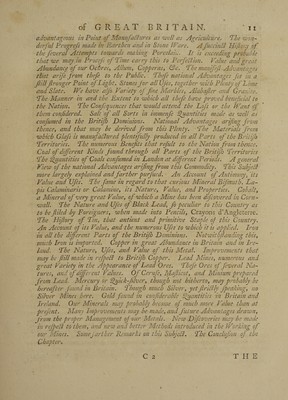 of GREAT BRITAIN. 11
advantageous in Point of Manufactures as well as Agriculture. The won-
derful Progress made in Borders and in Stone Ware. A succinct History of
the several Attempts towards making Porcelain. It is exceeding probable
that we may in Process of Time carry this to Perfection. Value and great
Abundancy of our Ochres, Allum, Copperas, &c. The manifold Advantages
that arise from these to the Public. These national Advantages set in a
still stronger Point of Light. Stones for all Uses, together with Plenty of Lime
and Slate. We have also Variety of fine Marbles, Alabaster and Granite.
The Manner in and the Extent to which all these have proved beneficial to
the Nation. The Consequences that would attend the Loss or the Want of
them considered. Salt of all Sorts in immense Quantities made as well as
consumed in the British Dominions. National Advantages arising from
thence, and that may be derived from this Plenty. The Materials from
which Glass is manufactured plentifully produced in all Parts of the British
Territories. The numerous Benefits that result to the Nation from thence.
Coal of different Kinds found through all Parts of the British Territories
The Quantities of Coals consumed in London at different Periods. A general
View of the national Advantages arising from this Commodity. This Subject
more largely explained and farther pursued. An Account of Antimony, its
Value and Uses. The same in regard to that curious Mineral Bismuth. La-
pis Calaminaris or Calamine, its Nature, Value, and Properties. Cobalt,
a Mineral of very great Value, of which a Mine has been discovered in Corn-
wall. The Nature and Uses of Black Lead, so peculiar to this Country as
to be styled by Foreigners, when made into Pencils, Crayons d'Angleterre.
The History of Tin, that antient and primitive Staple of this Country.
An Account of its Value, and the numerous Uses to which it is applied. Iron
in all the different Parts of the British Dominions. Notwithstanding this,
much Iron is imported. Copper in great Abundance in Britain and in Ire-
land. The Nature, Uses, and Value of this Metal. Improvements that
may be still made in respect to British Copper. Lead Mines, numerous and
great Variety in the Appearance of Lead Ores. These Ores of several Na-
tures, and of different Values. Of Ceruss, Masticot, and Minium prepared
from Lead. Mercury or Quick-silver, though not hitherto, may probably be
hereafter found in Britain. Though much Silver, yet strictly speaking, no
Silver Mines here. Gold found in considerable Quantities in Britain and
Ireland. Our Minerals may probably become of much more Value than at
present. Many Improvements may be made, and future Advantages drawn,
from the proper Management of our Metals. New Discoveries may be made
in respect to them, and new and better Methods introduced in the Working of
our Mines. Some farther Remarks on this Subject. The Conclusion of the
Chapter.
C 2 THE